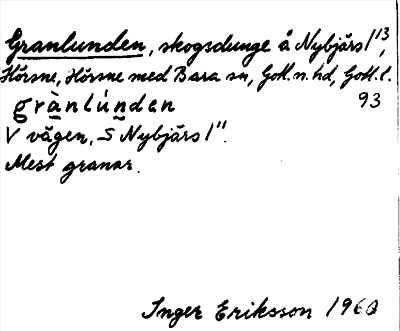 Granlunden, skogsdunge å Nybjärs 1¹³,
Hörsne, Hörsne med Bara sn, Gotl. n. hd, Gotl. l.
grànlúnden 93
V vägen, S Nybjärs 1¹¹.
Mest granar.
Inger Eriksson 1960